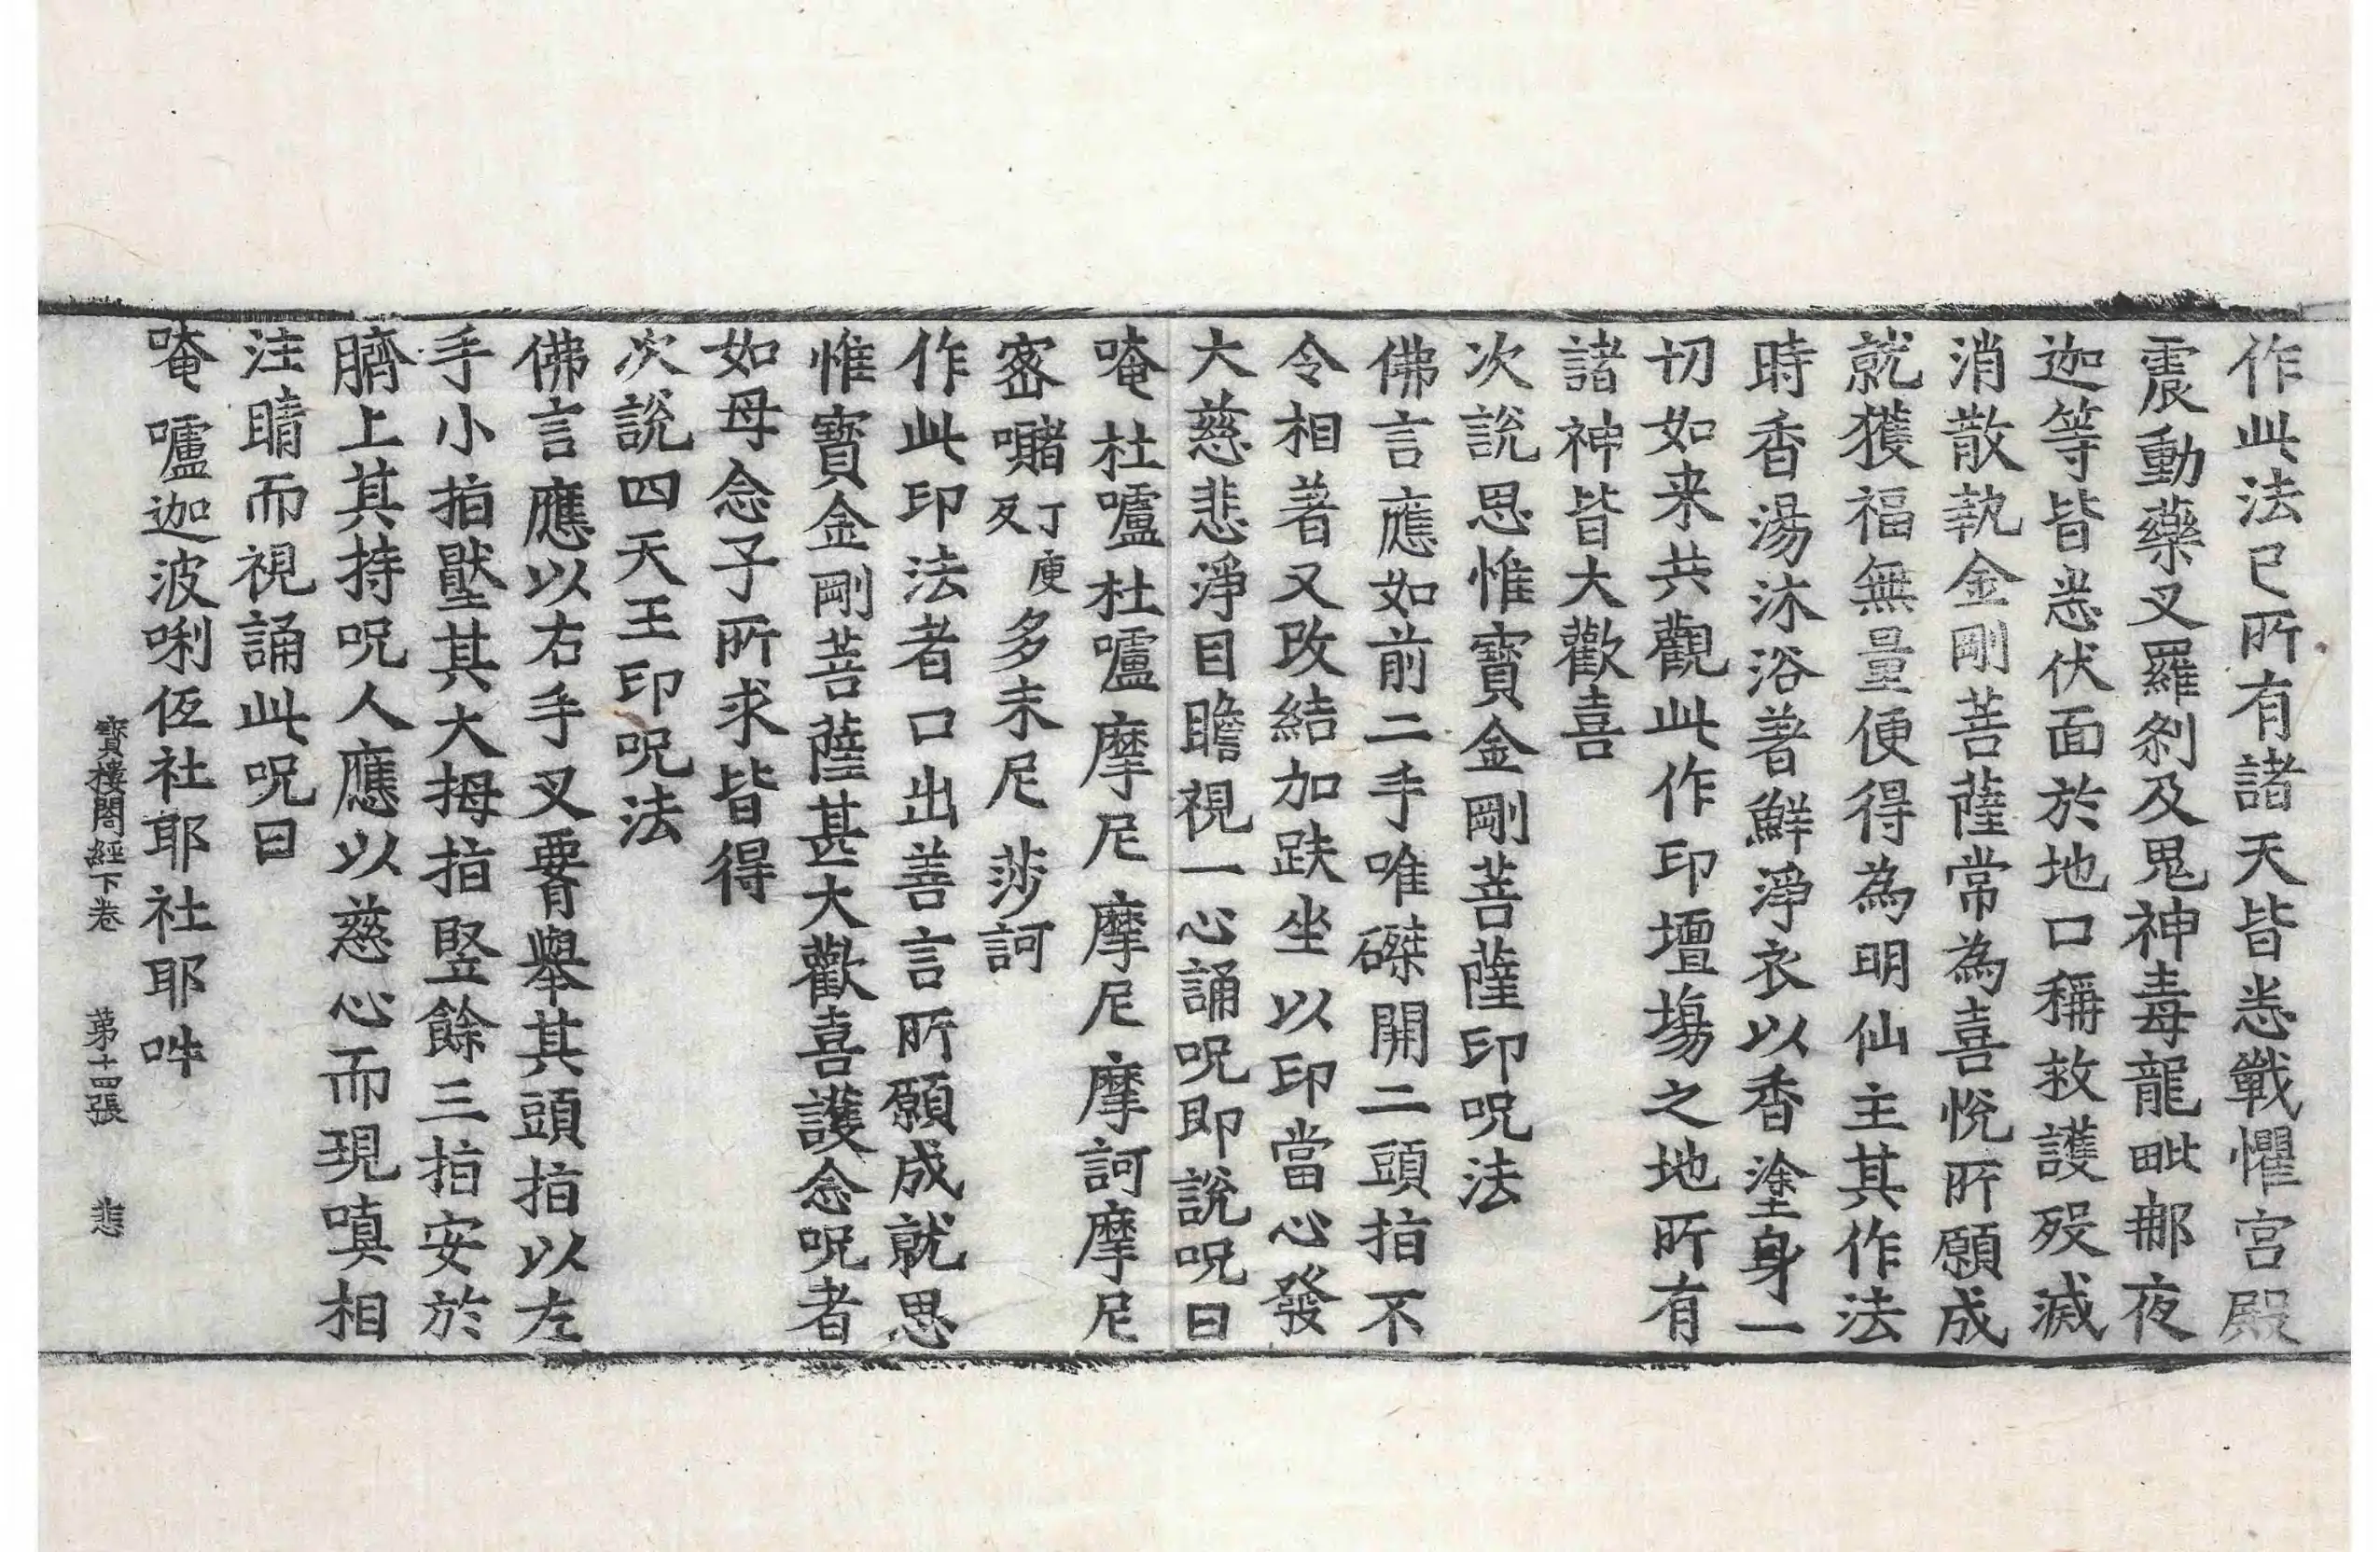 作此法已所有諸天皆悉戰懼宮殿
震動藥叉羅刹及鬼神毒龍毗那夜
迦等皆悉伏面於地口稱救護殁滅
消散執金剛菩薩常為喜悅所願成
就獲福無量便得為明仙主其作法
時香湯沐浴著鮮淨衣以香塗身一
切如来共觀此作印壇塲之地所有
諸神皆大歡喜
次說思惟寶金剛菩薩印呪法
佛言應如前二手唯磔開二頭指不
令相著又改結加趺坐以印當心發
大慈悲淨目瞻視一心誦呪即說呪曰
唵杜嚧杜嚧摩尼摩尼摩訶摩尼
宻𡃤丁庾反多末尼莎訶
作此印法者口出善言所願成就思
惟寶金剛菩薩甚大歡喜護念呪者
如母念子所求皆得
次說四天王印呪法
佛言應以右手叉䏚舉其頭指以左
手小指壓其大拇指竪餘三指安於
臍上其持呪人應以慈心而現嗔相
注睛而視誦此呪曰
唵嚧迦波唎㐌社耶社耶吽
寶樓閣經下卷 第十四張 悲